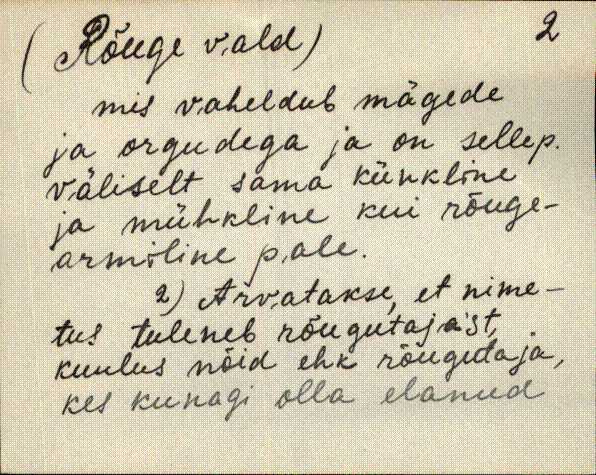 (Rõuge vald) 2
mis vaheldub mägede
ja orgudega ja on sellep.
väliselt sama künkline
ja mühkline kui rõuge-
armiline pale.
2) Arvatakse, et nime-
tus tuleneb rõugutaja'st,
kuulus nõid ehk rõugutaja,
kes kunagi olla elanud